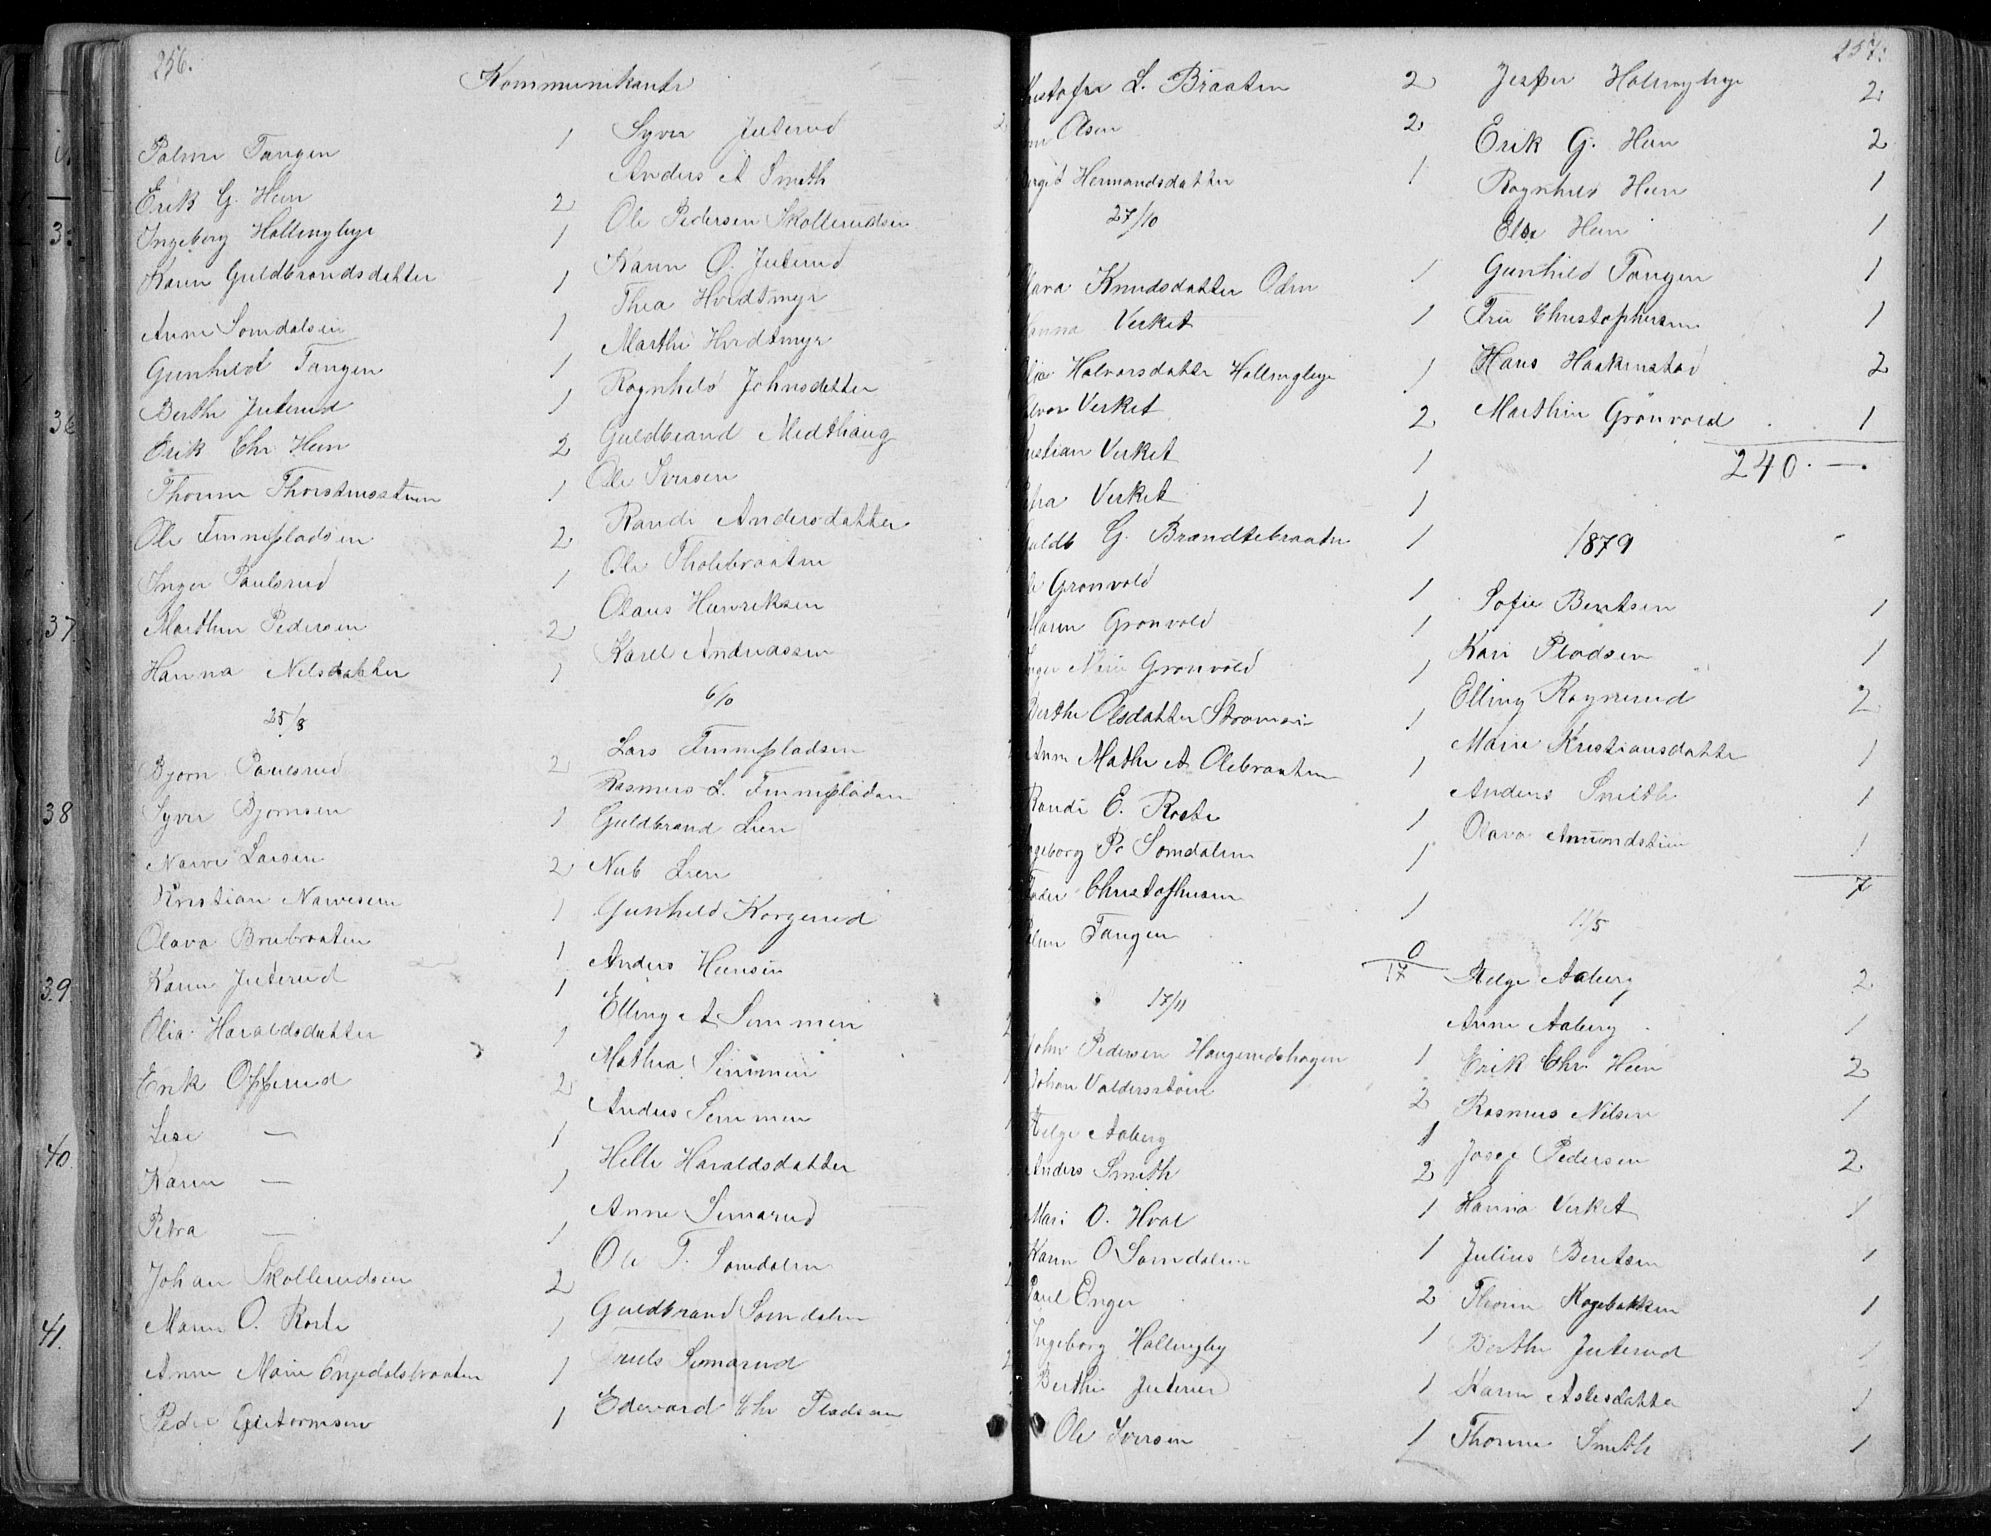 256.
Kommunikante
Palme Tangen 1
Erik G. Hein 2
Ingeborg Hallingbye 1
Karen Guldbrandsdatter 1
Anne Somdalsei 1
Gunhild Tangen 1
Berthe Juterud 1
Erik Chr Hein 2
Thorine 1
Ole Finnepladsen 2
Inger Paulsrud 1
Marthin Pedersen 2
Hanna Nilsdatter 1
25/8
Bjørn Paulsrud 2
Syver Bjørnsen 1
Narve Larsen 2
Kristian Narvesen 1
Olava Brubraaten 1
Karen Juterud 1
Olia Haraldsdatter 1
Erik Opperud 2
Lise — 1
Karen — 1
Petra — 1
Johan Skollerudsein 2
Maren O. Roste 1
Anne Marie Engedalsbraaten 1
Peder Guttormsen 1
Syver Juterud 2
Anders A Smith
Ole Pedersen Skollerudsein
Karen O. Juterud
Thea Hvidtmyr
Marthe Hvidtmyr
Ragnhild Johnsdatter
Guldbrand Midthaug
Ole Iversen
Randi Andersdatter
Ole Tholebraaten
Olaus Henriksen
Karel Andreassen
6/10
Lars Finnepladsen
Rasmus L. Finnepladsen
Guldbrand Lien
Nub Lien
Gunhild Korgerud
Anders Hansen
Elling A Semmen
Mathea Semmen
Anders Semmen
Helle Haraldsdatter
Anne Semarud
Ole T. Somdalen
Guldbrand Somdalen
Truls Semarud
Edevard Chr Pladsen
257.
istofer L. Braaten 2
Olsen 2
Hermandsdatter 1
27/10
Knudsdatter Oden 1
anna Verket 1
Halvorsdatter Hallingbye 1
lvor Verket 2
istian Verket 1
Verket 1
uldb G. Brandtebraaten 1
Grønvold 1
Maren Grønvold 1
nger Marie Grønvold 1
Berthe Olsdatter 1
Anne Mathe A Olebraaten 1
Randi E. Roste 1
ngeborg P. Somdalen 1
Christophersen 1
alme Tangen 0
17
17/11
John Pedersen Haugerudshagen 1
Johan Valdersstøen 2
Helge Aaberg 1
Anders Smith 2
Mari O. Hval 1
Karen O Somdalen 1
Paul Enger 2
Ingeborg Hallingby 1
Berthe Juterud 1
Ole Iversen 1
Jesper Hallingbye 2
Erik G. Hein 2
Ragnhild Hein 1
Else Hein 1
Gunhild Tangen 1
Fru Christophersen 1
Hans Haakenstad 2
Marthin Grønvold 1
240.—.
1879
Sofie Bentsen 1
Kari Pladsen 1
Elling Rognerud 2
Marie Kristiansdatter 1
Anders Smith 1
Olava 1
7
11/5
Helge Aaberg 2
Anne Aaberg 1
Erik Chr. Hein 2
Rasmus Nilsen 1
Pedersen 2
Hanna Verket 1
Julius Bentsen 1
Thorine Hagebakken 1
Berthe Juterud 1
Karen Aslesdatter 1
Thorine Smith 1